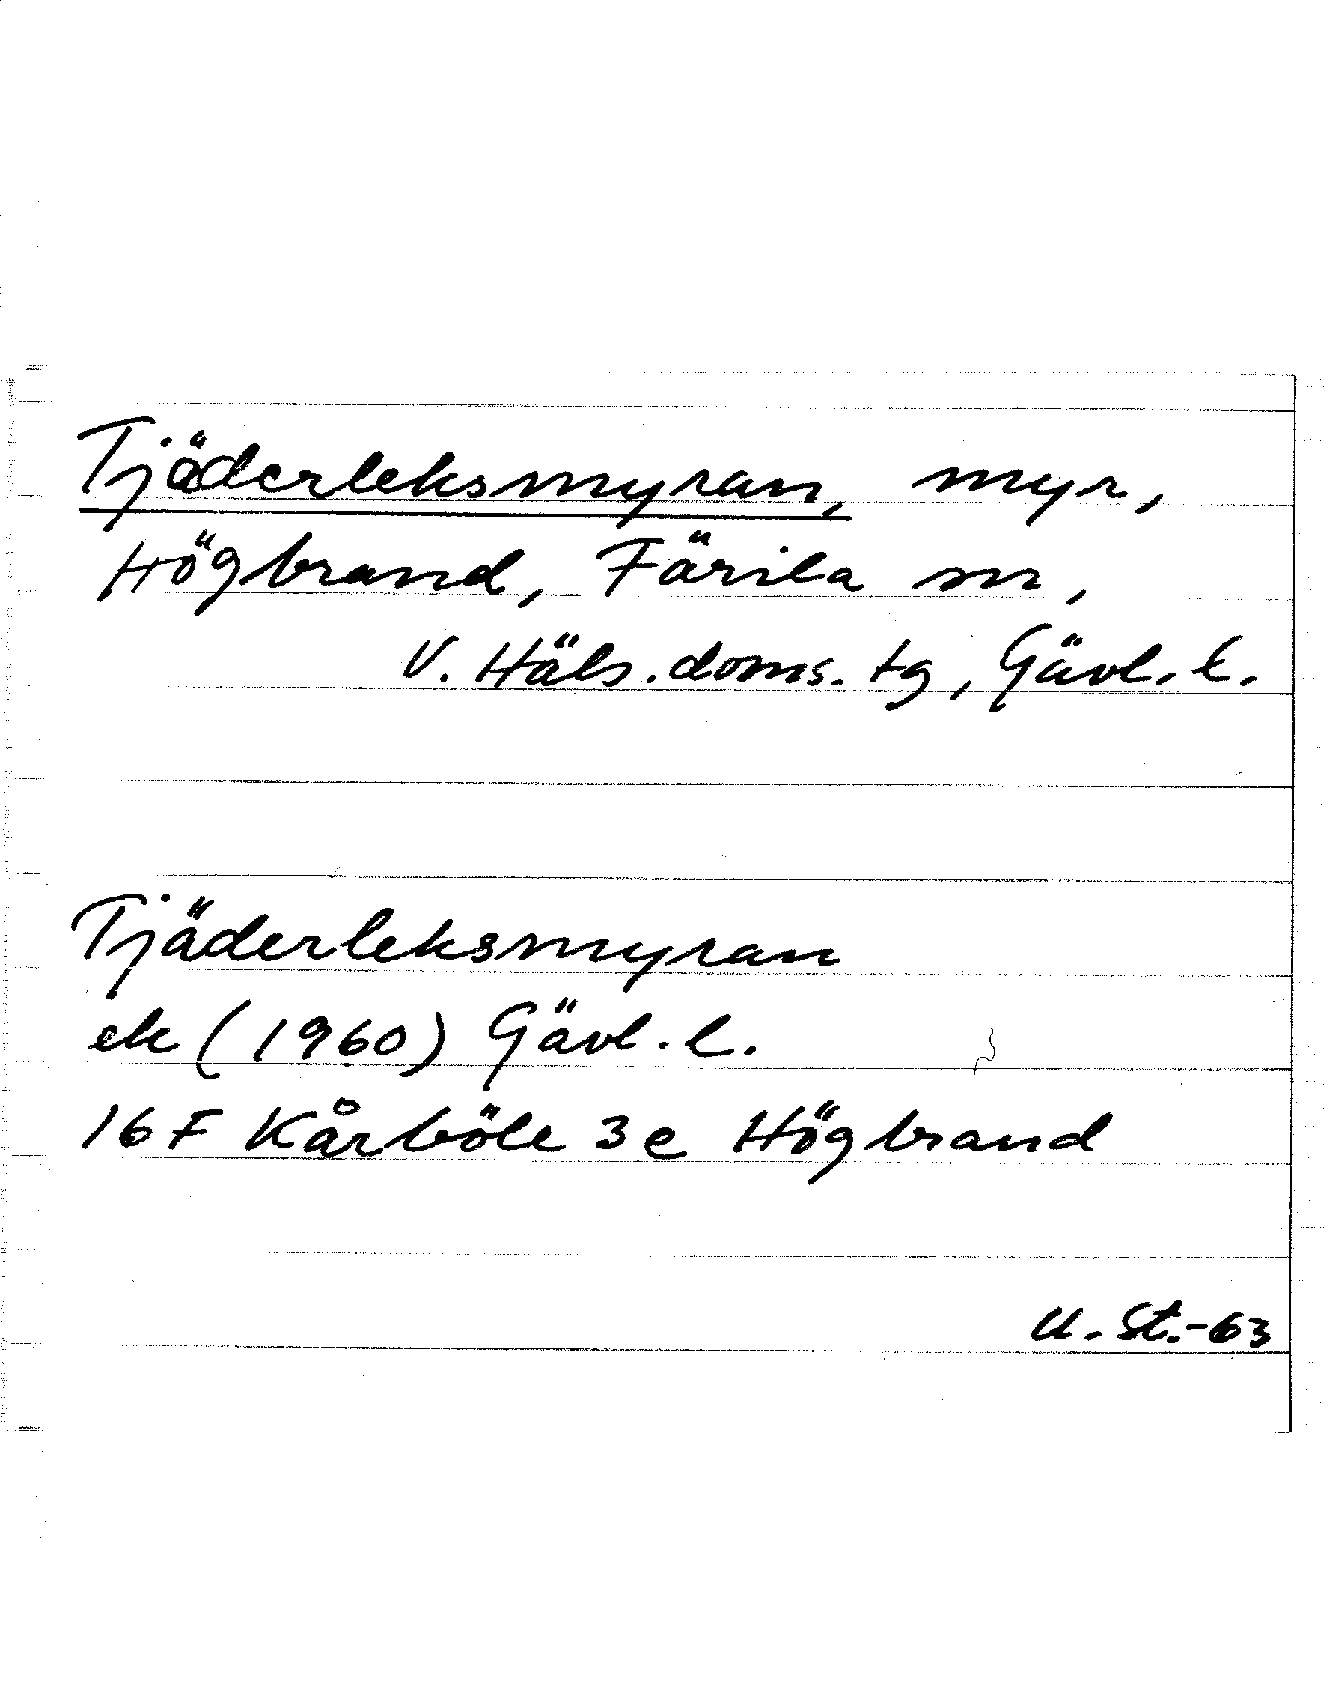 Tjäderleksmyran, myr,
Högbrand, Färila sn,
V. Häls. doms. tg, Gävl. l.
Tjäderleksmyran
ek (1960) Gävl. l.
16 F Kårböle 3 e Högbrand
U. St.-63